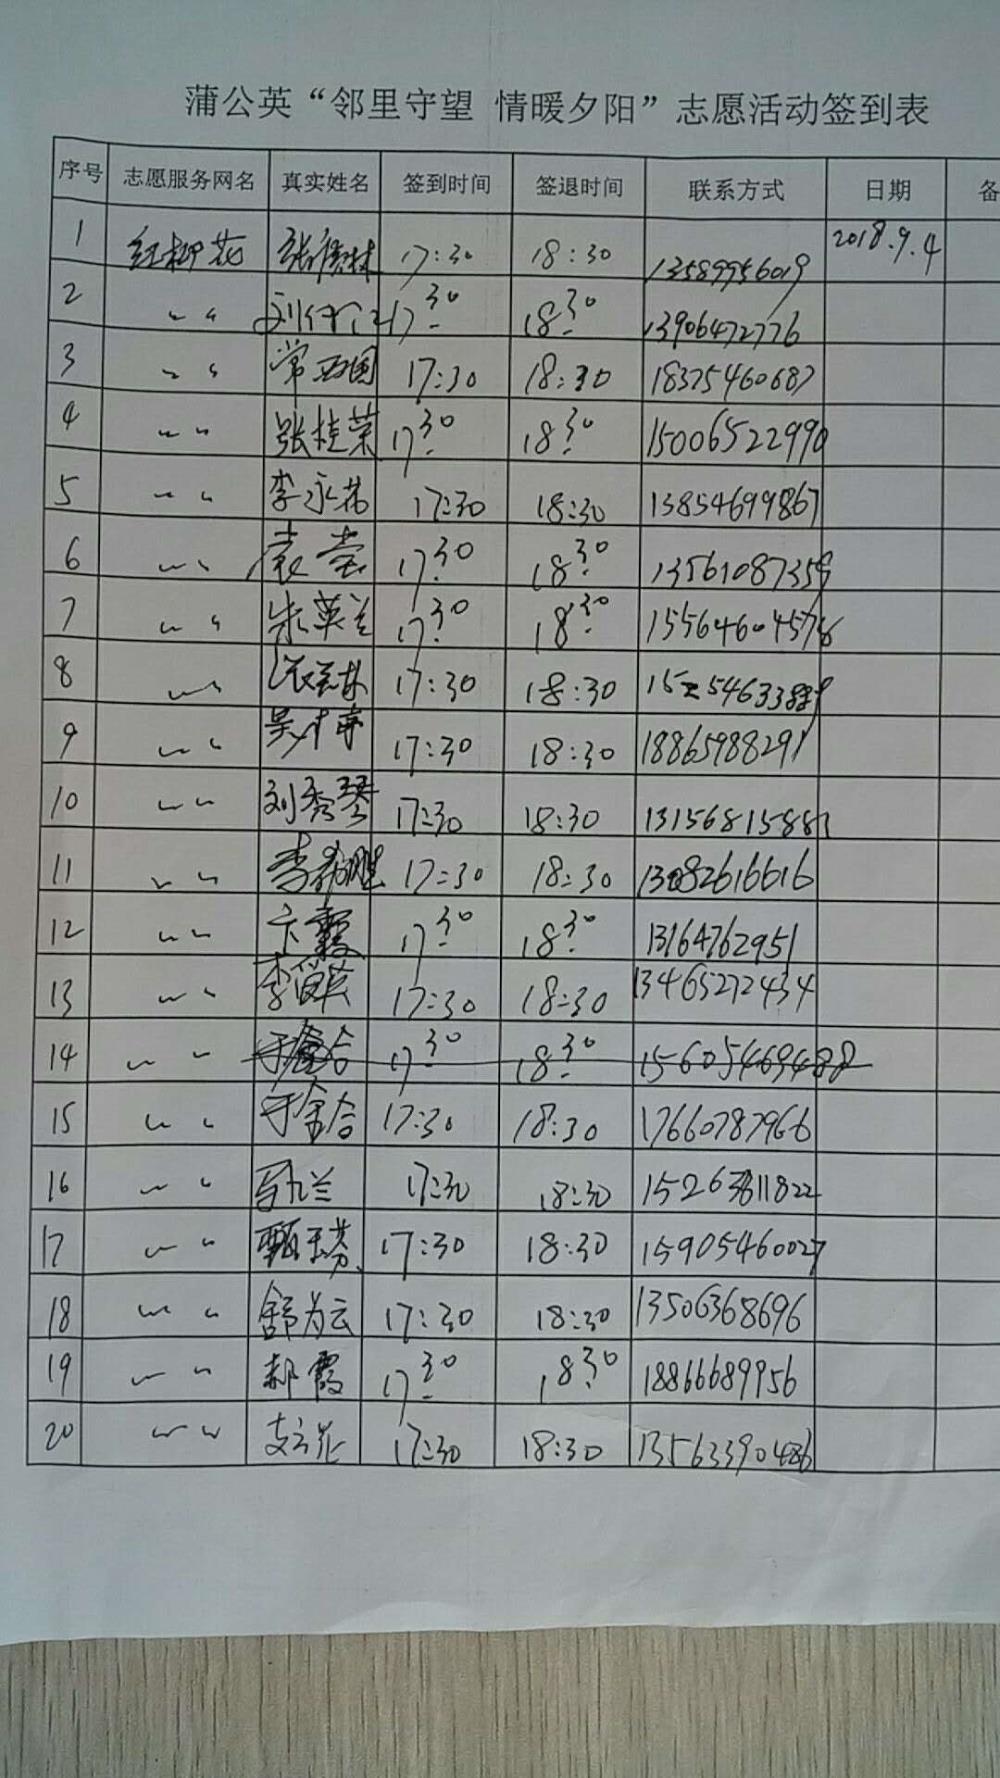 蒲公英“邻里守望 情暖夕阳”志愿活动签到表
序号 志愿服务网名 真实姓名 签到时间 签退时间 联系方式 日期 备
1 红柳花 张 林 17:30 18:30 13589956019 2018.9.4
2 〃 17:30 18:30 13906472776
3 〃 常西国 17:30 18:30 18375460687
4 〃 张桂荣 17:30 18:30 15006522990
5 〃 李永 17:30 18:30 13854699867
6 〃 袁莹 17:30 18:30 13561087359
7 〃 朱英兰 17:30 18:30
8 〃 17:30 18:30
9 〃 吴 17:30 18:30 18865988291
10 〃 刘秀琴 17:30 18:30 13156815881
11 〃 李 17:30 18:30 13082616616
12 〃 卞霞 17:30 18:30 13164762951
13 〃 李 英 17:30 18:30 13465272434
14 〃 17:30 18:30 15605469488
15 〃 于金合 17:30 18:30 17660787966
16 〃 马九兰 17:30 18:30
17 〃 甄玉芬 17:30 18:30 15905460027
18 〃 舒为云 17:30 18:30 13506368696
19 〃 郝霞 17:30 18:30 18866689956
20 〃 支云花 17:30 18:30 13563390486